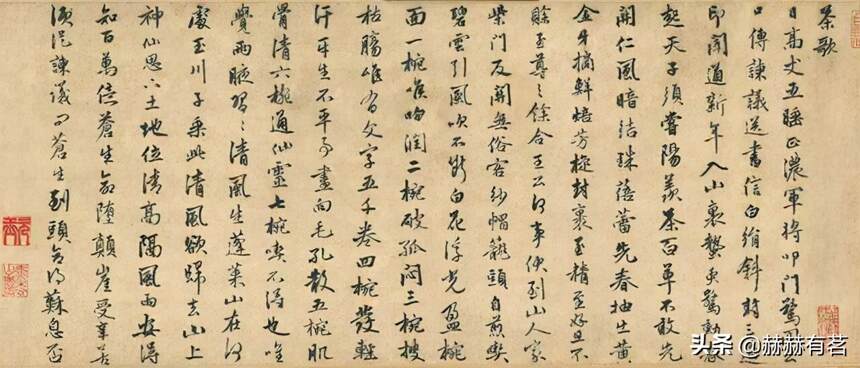 茶歌
日高丈五睡正濃軍將叩門驚周公
口傳諫議送書信白絹斜封三道
印聞道新年入山裏蟄虫驚動春
起天子須嘗陽羨茶百草不敢先
開仁風暗結珠蓓蕾先春抽出黃
金牙摘鮮焙芳旋封裹至精至好且不
餘至尊之餘合王公何事便到山人家
柴門反關無俗客紗帽籠頭自煎喫
碧雲引風吹不斷白花浮光盈椀
面一椀喉吻潤二椀破孤悶三椀搜
枯腸惟有文字五千卷四椀發輕
汗平生不平事盡向毛孔散五椀肌
骨清六椀通仙靈七椀喫不得也唯
覺兩腋習〻清風生蓬萊山在何
處玉川子乘此清風欲歸去山上
神仙思下土地位清高隔風雨安得
知百萬億蒼生命墮顛崖受辛苦
須從諫議問蒼生到頭合得蘇息否
头条 @赫赫有茗